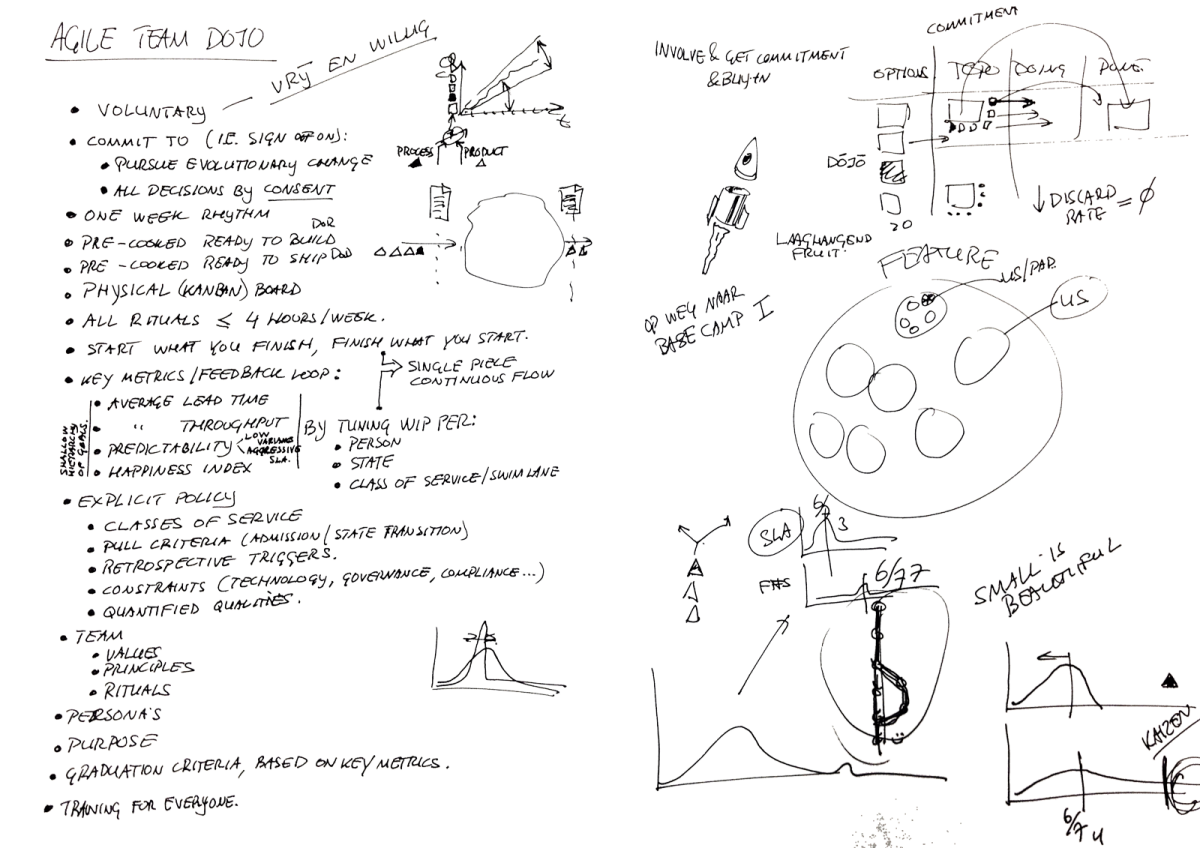 AGILE TEAM DOJO
VRY EN WILLIG
• VOLUNTARY
• COMMIT TO (I.E. SIGN OFF ON):
• PURSUE EVOLUTIONARY CHANGE
• ALL DECISIONS BY CONSENT
• ONE WEEK RHYTHM
• PRE-COOKED READY TO BUILD DoR
• PRE-COOKED READY TO SHIP DoD
• PHYSICAL (KANBAN) BOARD
• ALL RITUALS ≤ 4 HOURS/WEEK.
• START WHAT YOU FINISH, FINISH WHAT YOU START.
SINGLE PIECE
CONTINUOUS FLOW
• KEY METRICS/FEEDBACK LOOP:
SHALLOW
HIERARCHY
OF GOALS.
• AVERAGE LEAD TIME
• " THROUGHPUT
• PREDICTABILITY < LOW VARIANCE
AGGRESSIVE SLA.
• HAPPINESS INDEX
BY TUNING WIP PER:
• PERSON
• STATE
• CLASS OF SERVICE/SWIMLANE
• EXPLICIT POLICY
• CLASSES OF SERVICE
• PULL CRITERIA (ADMISSION/STATE TRANSITION)
• RETROSPECTIVE TRIGGERS.
• CONSTRAINTS (TECHNOLOGY, GOVERNANCE, COMPLIANCE...)
• QUANTIFIED QUALITIES.
• TEAM
• VALUES
• PRINCIPLES
• RITUALS
• PERSONA'S
• PURPOSE
• GRADUATION CRITERIA, BASED ON KEY METRICS.
• TRAINING FOR EVERYONE.
t
PROCESS PRODUCT
INVOLVE & GET COMMITMENT
& BUY-IN
COMMITMENT
OPTIONS TODO DOING DONE
DŌJŌ
20
↓ DISCARD
RATE = Ø
LAAGHANGEND
FRUIT.
OP WEG NAAR
BASE CAMP I
FEATURE
US/PAR.
US
SLA
6/
3
6/77
SMALL IS
BEAUTIFUL
KAIZEN
6/7 4